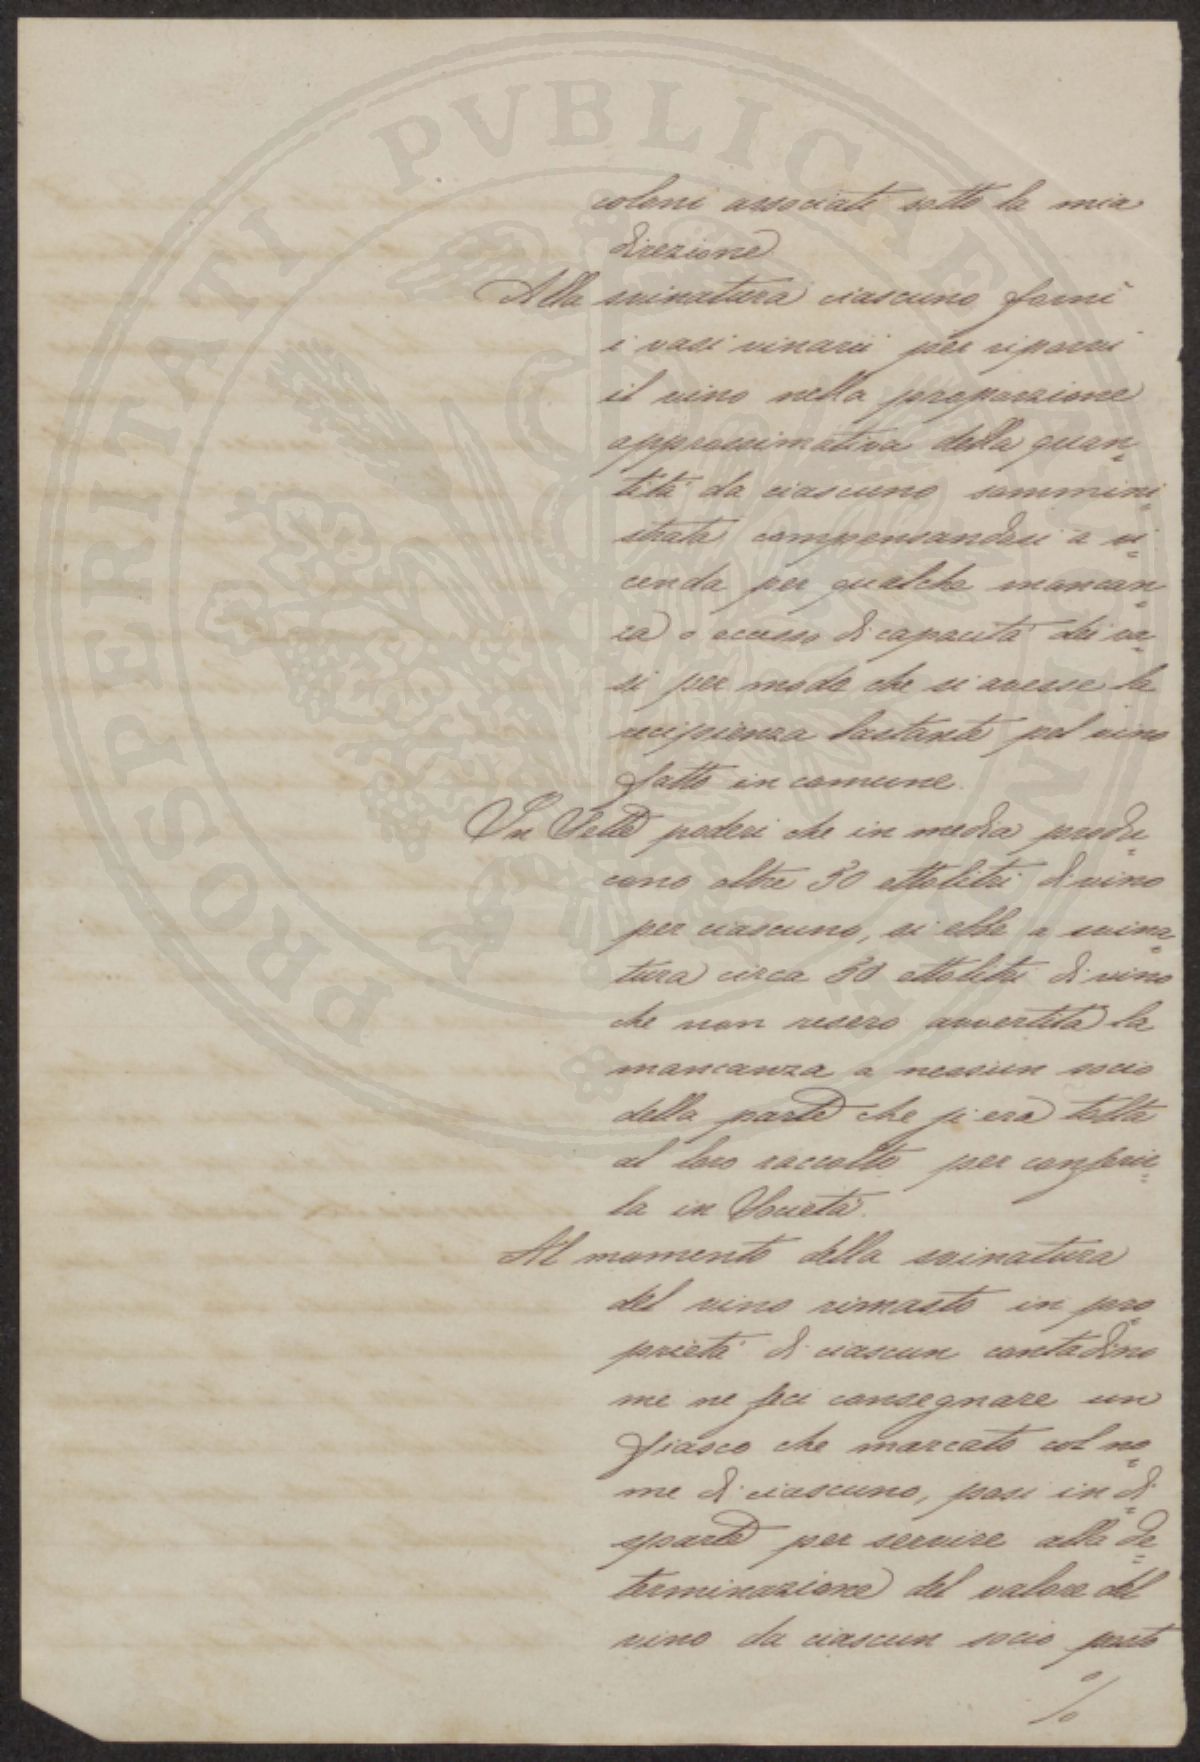 coloni associati sotto la mia
direzione.
Alla svinatura ciascuno fornì
i vasi vinarii per riporvi
il vino nella proporzione
approssimativa della quan=
tità da ciascuno sommini=
strata compensandosi a vi=
cenda per qualche mancan=
za o eccesso di capacità dei va=
si per modo che si avesse la
recipienza bastante pel vino
fatto in comune.
In Sette poderi che in media produ=
cono oltre 50 ettolitri di vino
per ciascuno, si ebbe a svina=
tura circa 30 ettolitri di vino
che non resero avvertita la
mancanza a nessun socio
della parte che si era tolta
al loro raccolto per conferir=
la in Società.
Al momento della svinatura
del vino rimasto in pro=
prietà di ciascun contadino
me ne feci consegnare un
fiasco che marcato col no=
me di ciascuno, posi in di=
sparte per servire alla de=
terminazione del valore del
vino da ciascun socio posto
%
PROSPERITATI PVBLICAE AVGENDAE